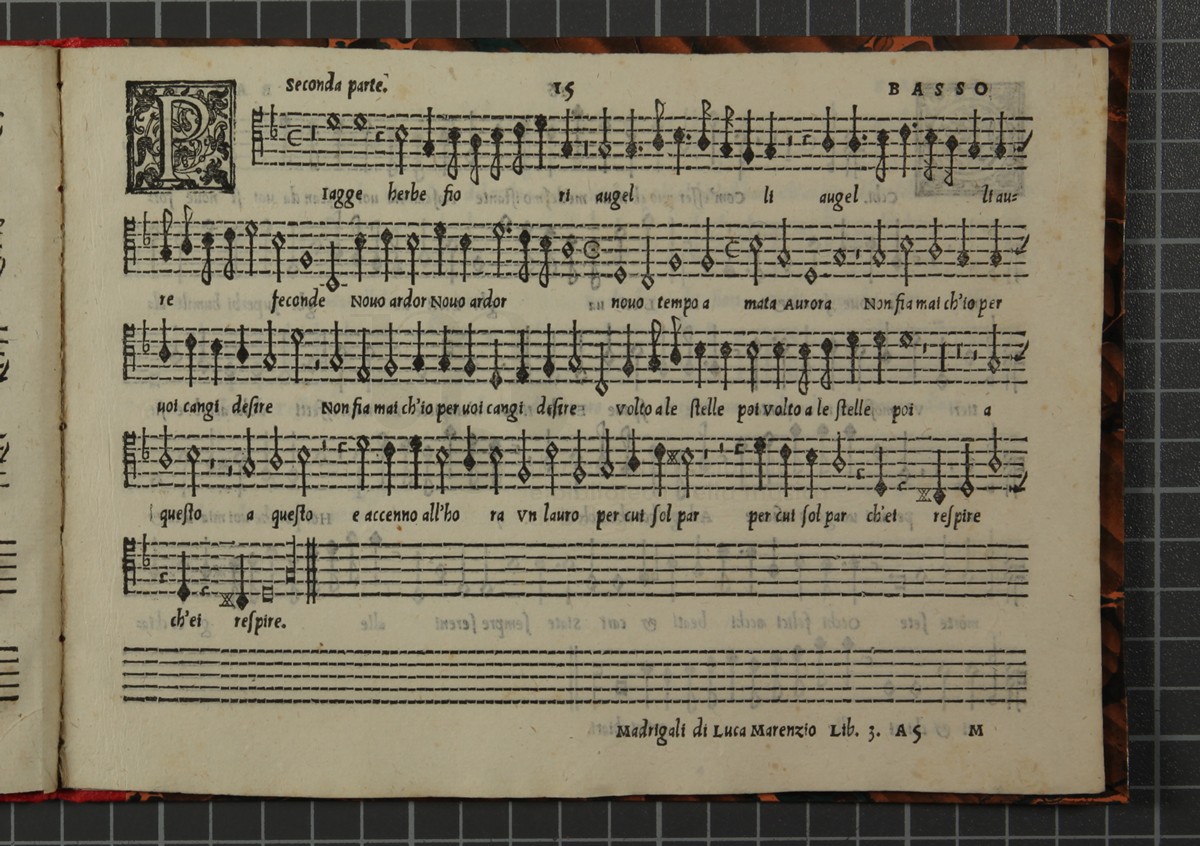 Seconda parte. 15 BASSO
PIagge herbe fio ri augel li augel li au=
re feconde Nouo ardor Nouo ardor nouo tempo a mata Aurora Non fia mai ch'io per
uoi cangi desire Non fia mai ch'io per uoi cangi desire volto a le stelle poi volto a le stelle poi a
questo a questo e accenno all'ho ra Vn lauro per cui sol par per cui sol par ch'ei respire
ch'ei respire.
Madrigali di Luca Marenzio Lib. 3. A 5 M